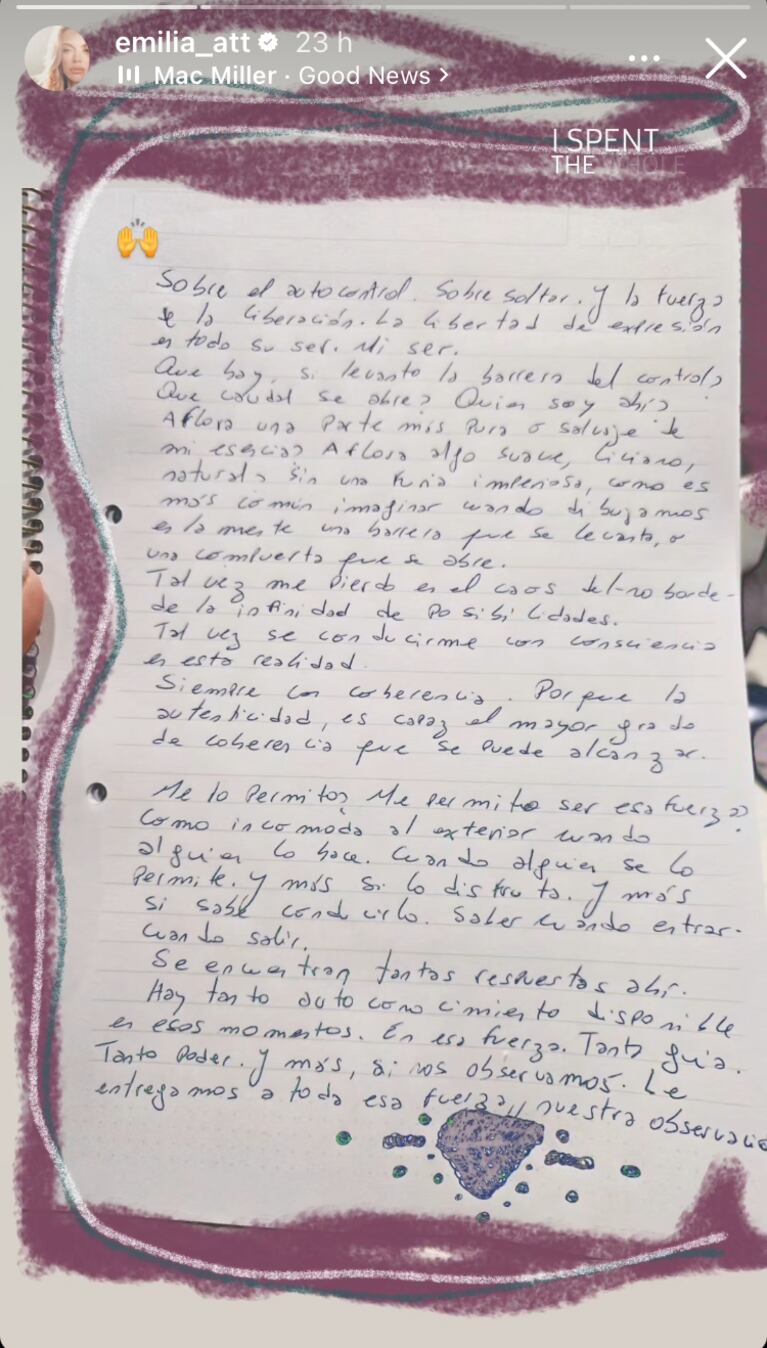 emilia_att 23 h
Mac Miller · Good News >
I SPENT
THE WHOLE
Sobre el autocontrol. Sobre soltar. Y la fuerza
de la liberación. La libertad de expresión
en todo su ser. Mi ser.
Que hay, si levanto la barrera del control?
Que caudal se abre? Quien soy ahí?
Aflora una parte más pura o salvaje de
mi esencia? Aflora algo suave, liviano,
natural? Sin una furia imperiosa, como es
más común imaginar cuando dibujamos
en la mente una barrera que se levanta, o
una compuerta que se abre.
Tal vez me pierdo en el caos del-no borde-
de la infinidad de posibilidades.
Tal vez se conducirme con consciencia
en esta realidad.
Siempre con coherencia. Porque la
autenticidad, es capaz el mayor grado
de coherencia que se puede alcanzar.
Me lo permito? Me permito ser esa fuerza?
Como incomoda al exterior cuando
alguien lo hace. Cuando alguien se lo
permite. Y más si lo disfruta. Y más
si sabe conducirlo. Saber cuando entrar-
cuando salir.
Se encuentran tantas respuestas ahí.
Hay tanto autoconocimiento disponible
en esos momentos. En esa fuerza. Tanta guía.
Tanto poder. Y más, si nos observamos. Le
entregamos a toda esa fuerza, nuestra